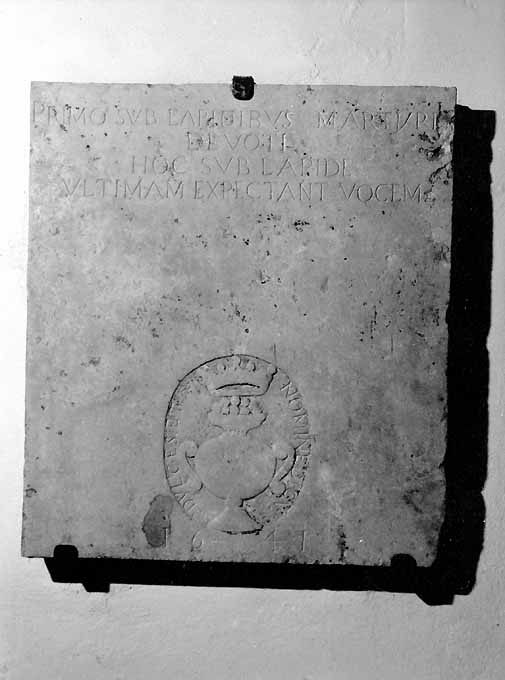 PRIMO SVB LAPIDIBVS MARTIRI
DEVOTI
HOC SVB LAPIDE
VLTIMAM EXPECTANT VOCEM
DVLCE
1647